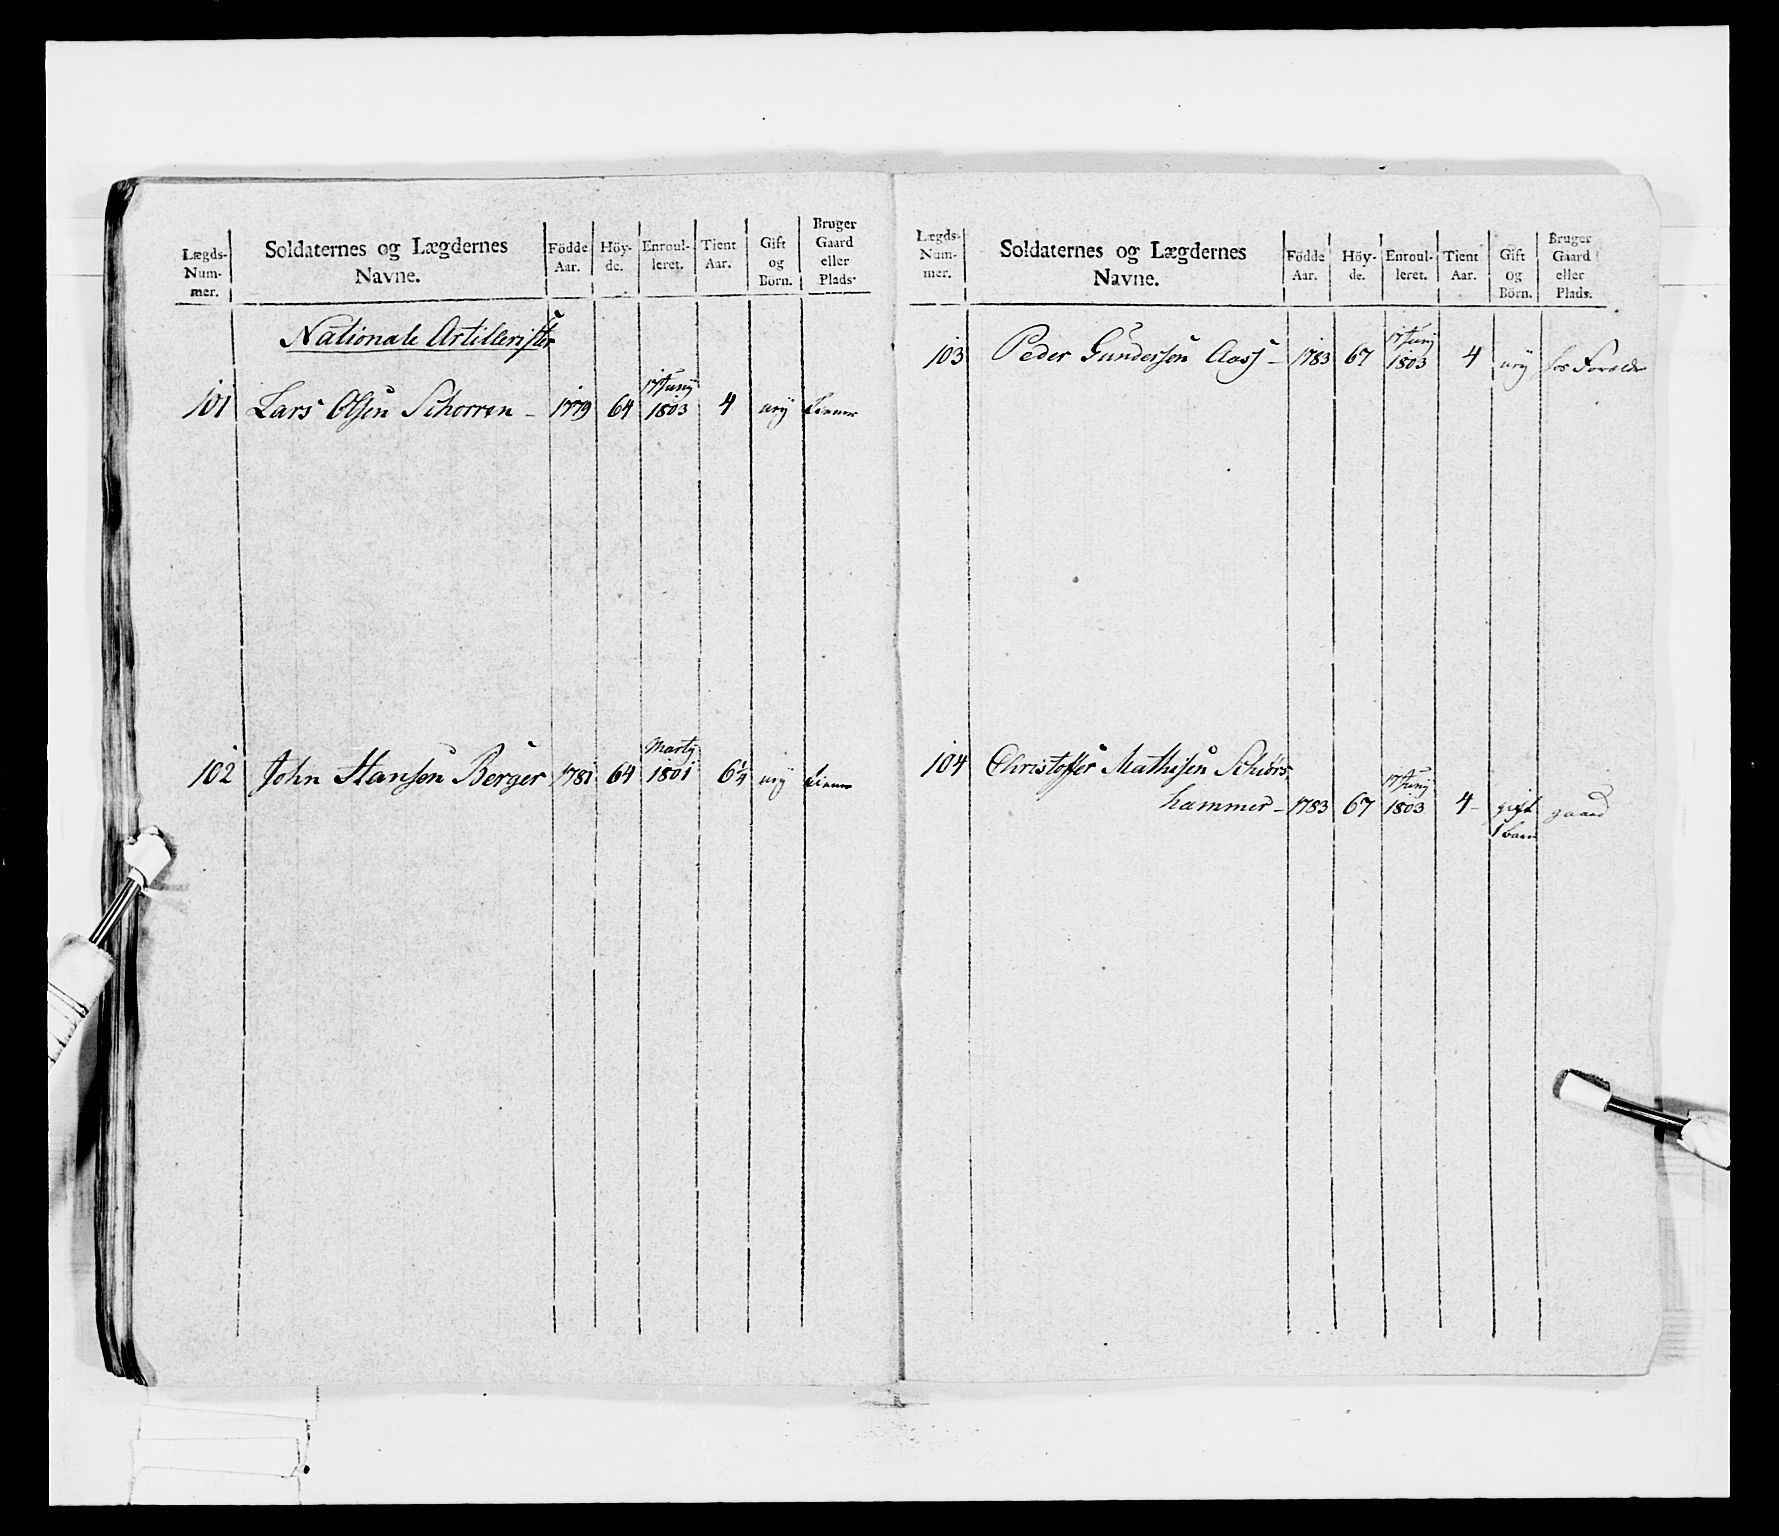 Lægds-Num-mer. Soldaternes og Lægdernes Navne. Födde Aar. Höy-de. Enroul-leret. Tient Aar. Gift og Börn. Bruger Gaard eller Plads.
Nationale Artillerister
17 Junÿ
101 Lars Olsen Schorren - 1779 64 1803 4 uey tiener
Martÿ
102 John Hansen Berger 1781 64 1801 6¼ uey tiener
Lægds-Num-mer. Soldaternes og Lægdernes Navne. Födde Aar. Höy-de. Enroul-leret. Tient Aar. Gift og Börn. Bruger Gaard eller Plads.
17 Junÿ
103 Peder Gundersen Aass - 1783 67 1803 4 uey hos Forælde
104 Christoffer Mathisen Schiørs
17 Junÿ
hammer - 1783 67 1803 4 - gift gaard
1 barn